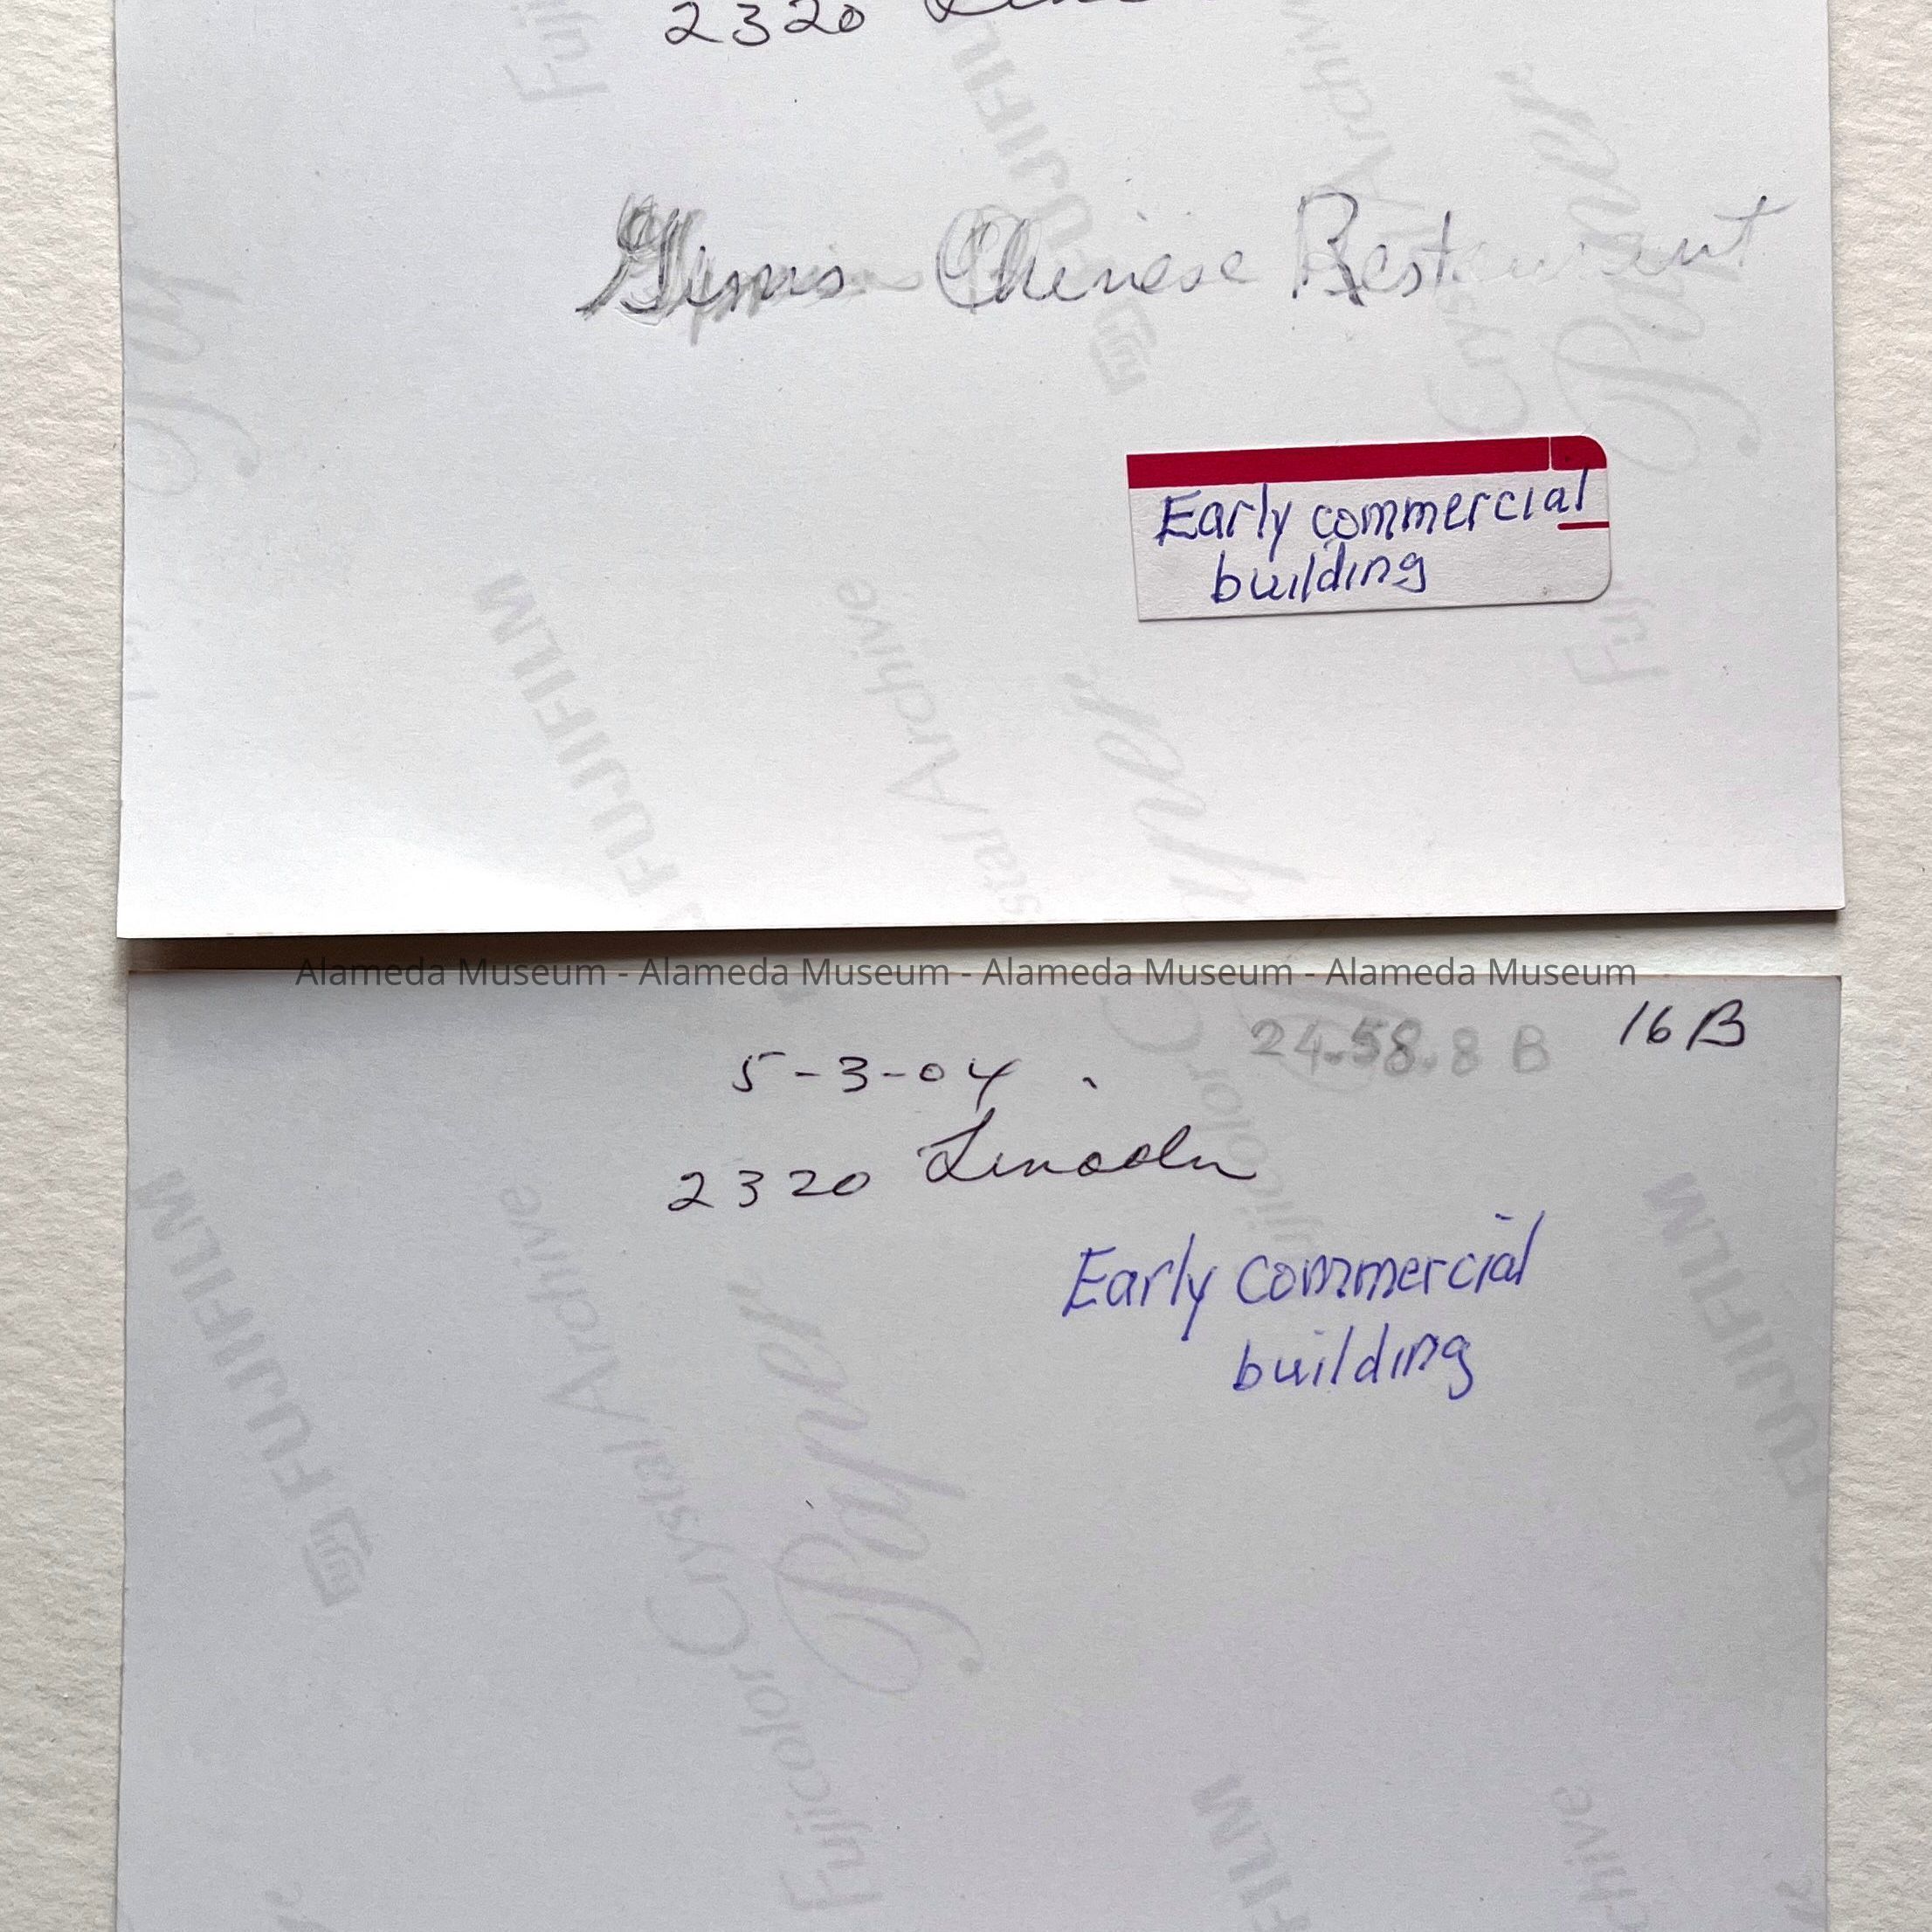 2320
Gim's Chinese Restaurant
Early commercial
building
Alameda Museum - Alameda Museum - Alameda Museum - Alameda Museum
24.58.8 B
16B
5-3-04
2320 Lincoln
Early commercial
building
FUJIFILM
Fujicolor Crystal Archive
Paper